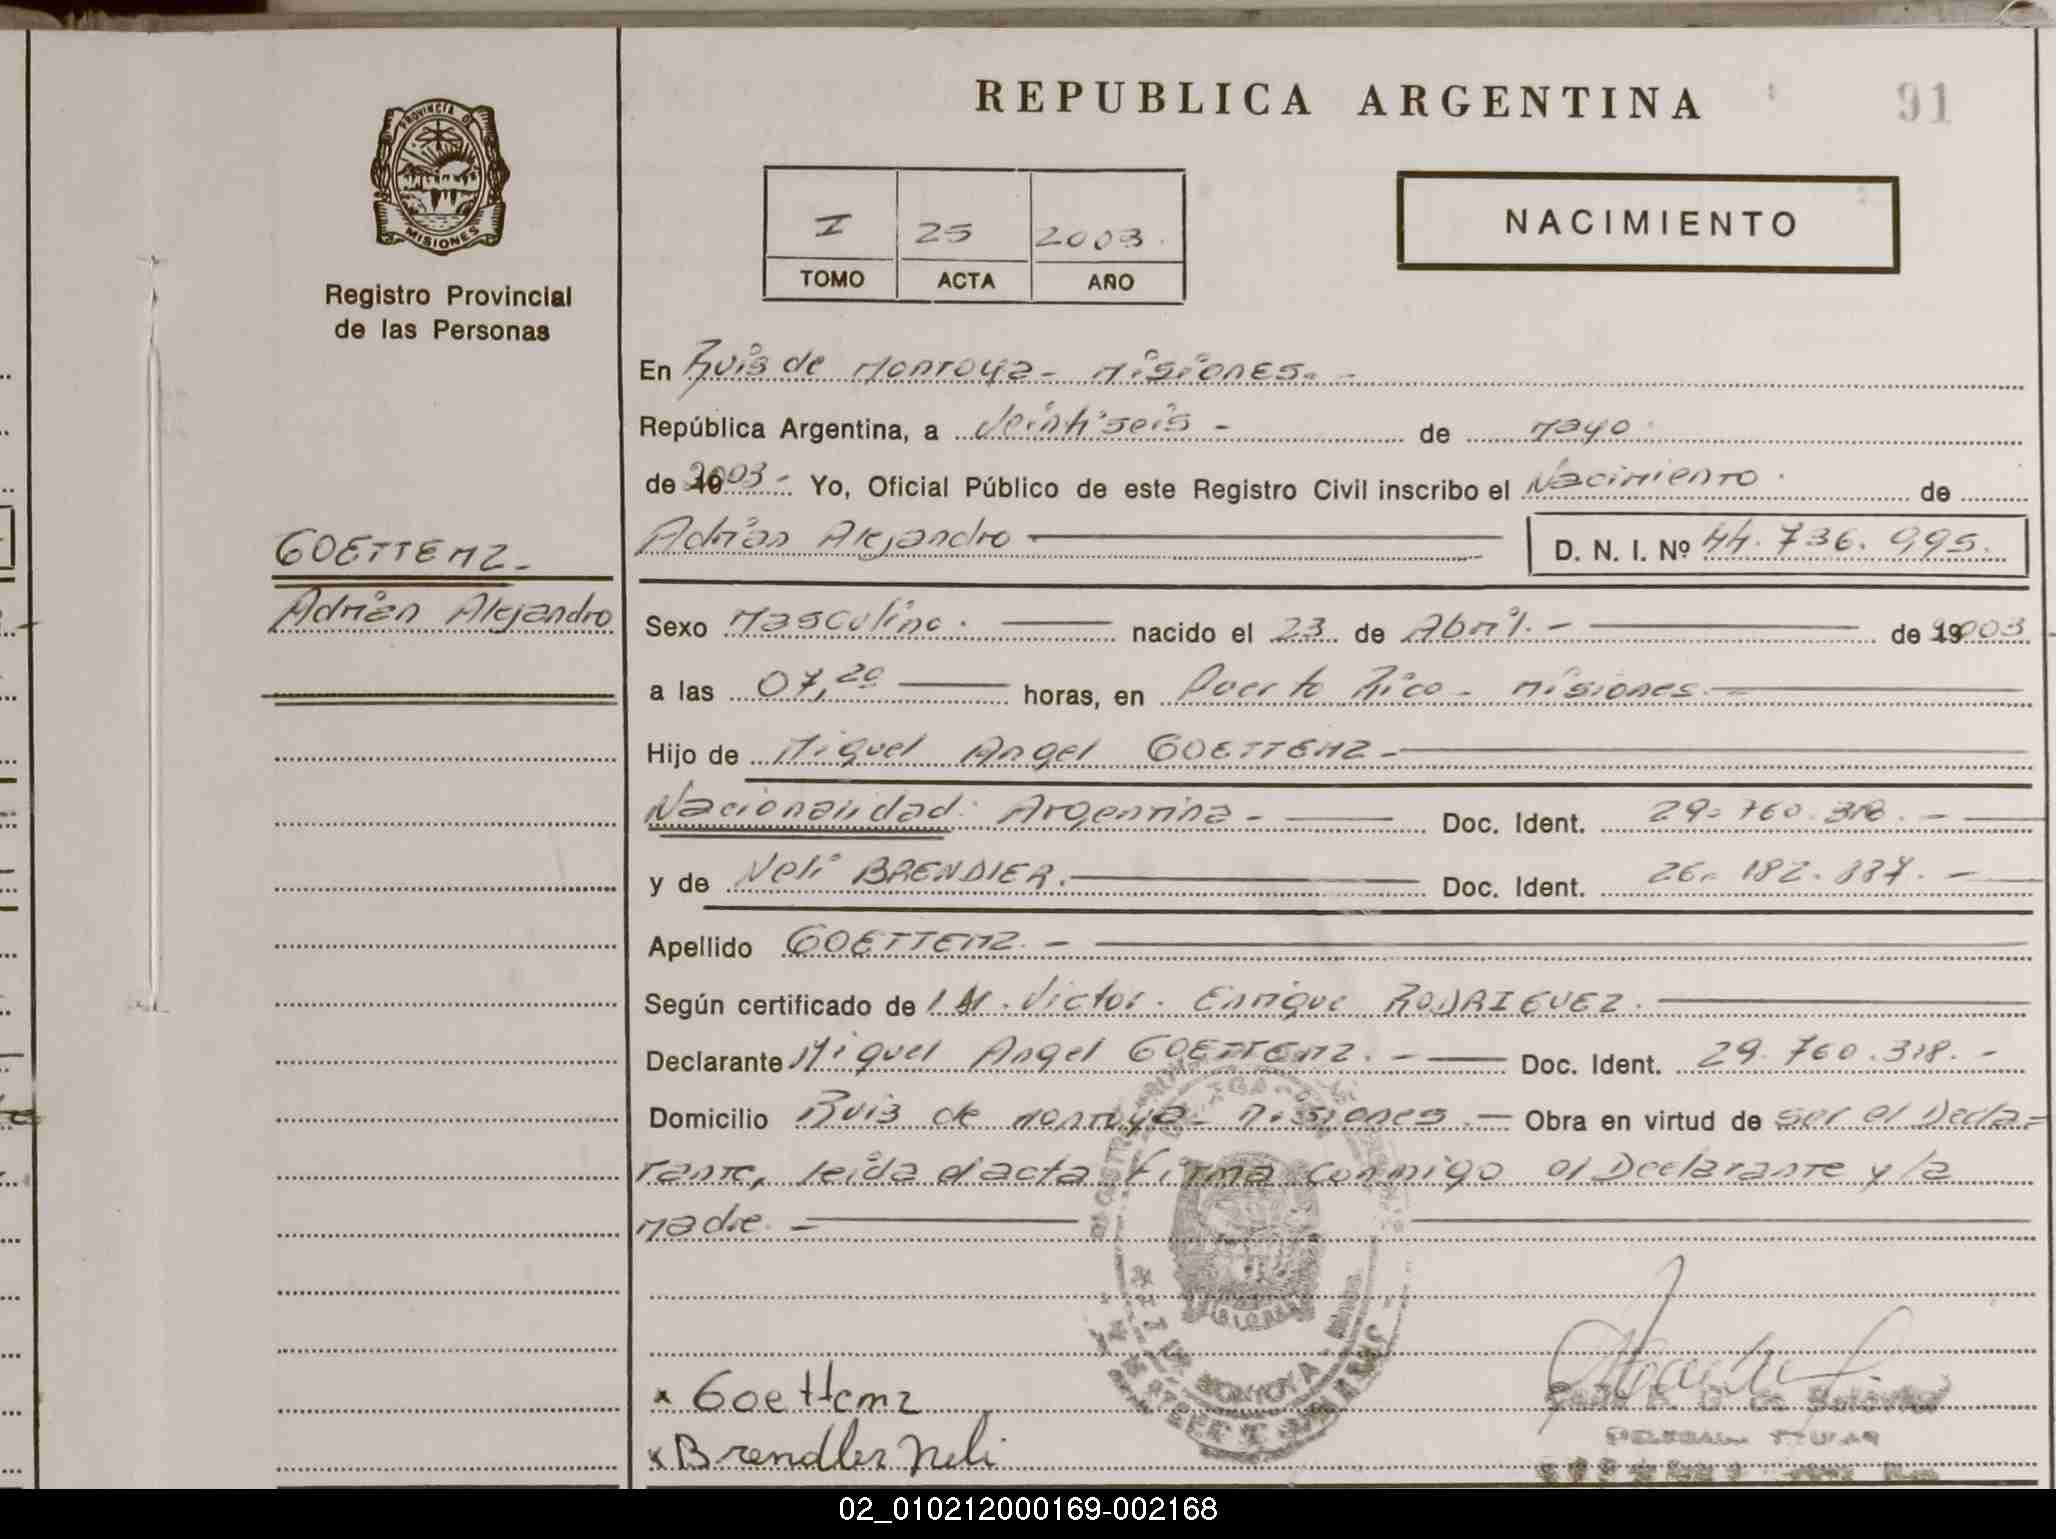 REPUBLICA ARGENTINA
91
PROVINCIA DE
MISIONES
Registro Provincial
de las Personas
I 25 2003.
TOMO ACTA AÑO
NACIMIENTO
En Ruiz de Montoya - Misiones. -
República Argentina, a Veintiseis - de mayo.
de 2003 - Yo, Oficial Público de este Registro Civil inscribo el Nacimiento. de
Adrián Alejandro D. N. I. Nº 44.736.995.
GOETTEMZ -
Adrián Alejandro
Sexo Masculino. nacido el 23 de Abril. - de 2003
a las 07,20 horas, en Puerto Rico - Misiones. -
Hijo de Miguel Angel GOETTEMZ -
Nacionalidad: Argentina - Doc. Ident. 29.760.318. -
y de Neli BRENDLER. Doc. Ident. 26.182.337. -
Apellido GOETTEMZ. -
Según certificado de Victor. Enrique RODRIGUEZ.
Declarante Miguel Angel GOETTEMZ. - Doc. Ident. 29.760.318. -
Domicilio Ruiz de Montoya - Misiones. - Obra en virtud de ser el Decla-
rante, leída el acta Firma conmigo el Declarante y la
madre. -
MONTOYA
x Goettemz
x Brendler Neli
TITULAR
02_010212000169-002168